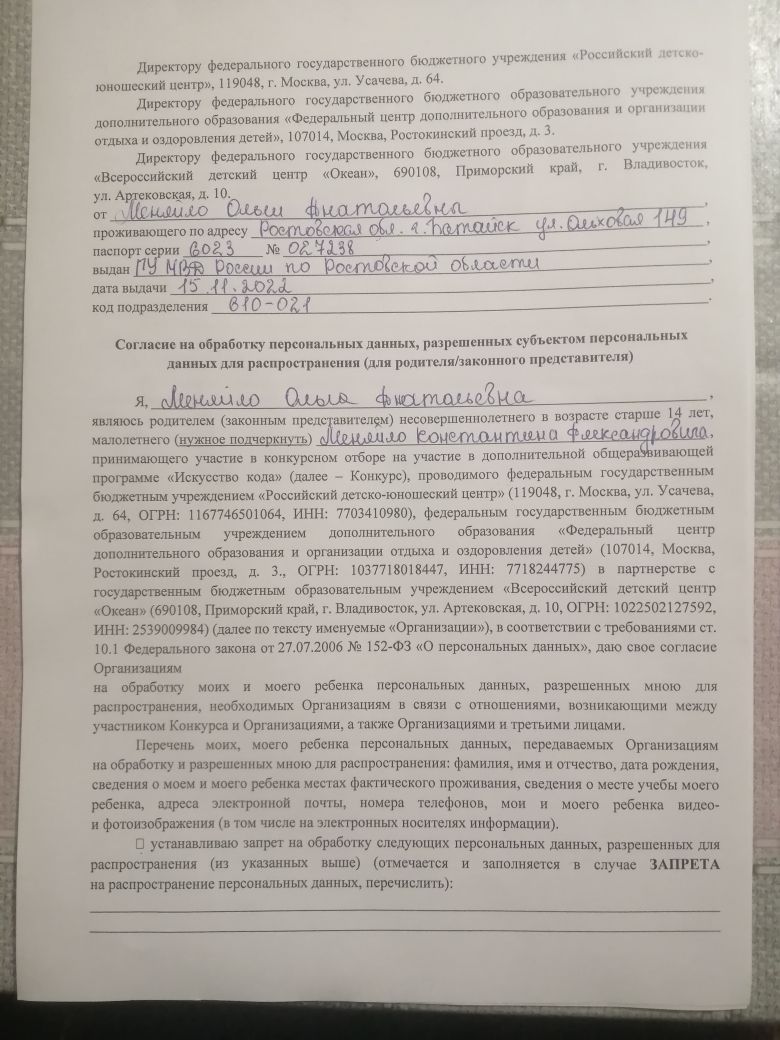 Директору федерального государственного бюджетного учреждения «Российский детско-
юношеский центр», 119048, г. Москва, ул. Усачева, д. 64.
Директору федерального государственного бюджетного образовательного учреждения
дополнительного образования «Федеральный центр дополнительного образования и организации
отдыха и оздоровления детей», 107014, Москва, Ростокинский проезд, д. 3.
Директору федерального государственного бюджетного образовательного учреждения
«Всероссийский детский центр «Океан», 690108, Приморский край, г. Владивосток,
ул. Артековская, д. 10.
от Меняйло Ольги Анатольевны,
проживающего по адресу Ростовская обл. г. Батайск ул. Ольховая 149,
паспорт серии 6023 № 027238,
выдан ГУ МВД России по Ростовской области,
дата выдачи 15.11.2022,
код подразделения 610-021.
Согласие на обработку персональных данных, разрешенных субъектом персональных
данных для распространения (для родителя/законного представителя)
Я, Меняйло Ольга Анатольевна,
являюсь родителем (законным представителем) несовершеннолетнего в возрасте старше 14 лет,
малолетнего (нужное подчеркнуть) Меняйло Константина Александровича,
принимающего участие в конкурсном отборе на участие в дополнительной общеразвивающей
программе «Искусство кода» (далее – Конкурс), проводимого федеральным государственным
бюджетным учреждением «Российский детско-юношеский центр» (119048, г. Москва, ул. Усачева,
д. 64, ОГРН: 1167746501064, ИНН: 7703410980), федеральным государственным бюджетным
образовательным учреждением дополнительного образования «Федеральный центр
дополнительного образования и организации отдыха и оздоровления детей» (107014, Москва,
Ростокинский проезд, д. 3., ОГРН: 1037718018447, ИНН: 7718244775) в партнерстве с
государственным бюджетным образовательным учреждением «Всероссийский детский центр
«Океан» (690108, Приморский край, г. Владивосток, ул. Артековская, д. 10, ОГРН: 1022502127592,
ИНН: 2539009984) (далее по тексту именуемые «Организации»), в соответствии с требованиями ст.
10.1 Федерального закона от 27.07.2006 № 152-ФЗ «О персональных данных», даю свое согласие
Организациям
на обработку моих и моего ребенка персональных данных, разрешенных мною для
распространения, необходимых Организациям в связи с отношениями, возникающими между
участником Конкурса и Организациями, а также Организациями и третьими лицами.
Перечень моих, моего ребенка персональных данных, передаваемых Организациям
на обработку и разрешенных мною для распространения: фамилия, имя и отчество, дата рождения,
сведения о моем и моего ребенка местах фактического проживания, сведения о месте учебы моего
ребенка, адреса электронной почты, номера телефонов, мои и моего ребенка видео-
и фотоизображения (в том числе на электронных носителях информации).
□ устанавливаю запрет на обработку следующих персональных данных, разрешенных для
распространения (из указанных выше) (отмечается и заполняется в случае ЗАПРЕТА
на распространение персональных данных, перечислить):